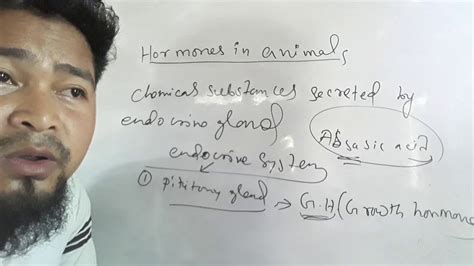 Hormones in animals
chemical substances secreted by
endocrine gland
Absasic acid
endocrine system
① Pititary gland → G.H (Growth hormone